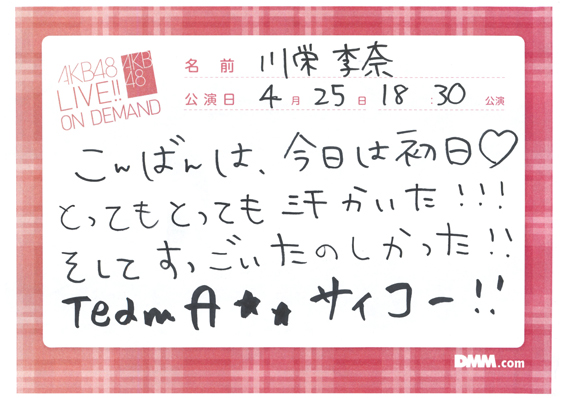 AKB48
LIVE!!
ON DEMAND
AKB
48
名前 川栄 李奈
公演日 4月25日 18:30 公演
こんばんは、今日は初日♡
とってもとっても汗かいた!!!
そしてすっごいたのしかった!!
TeamA★★サイコー!!
DMM.com